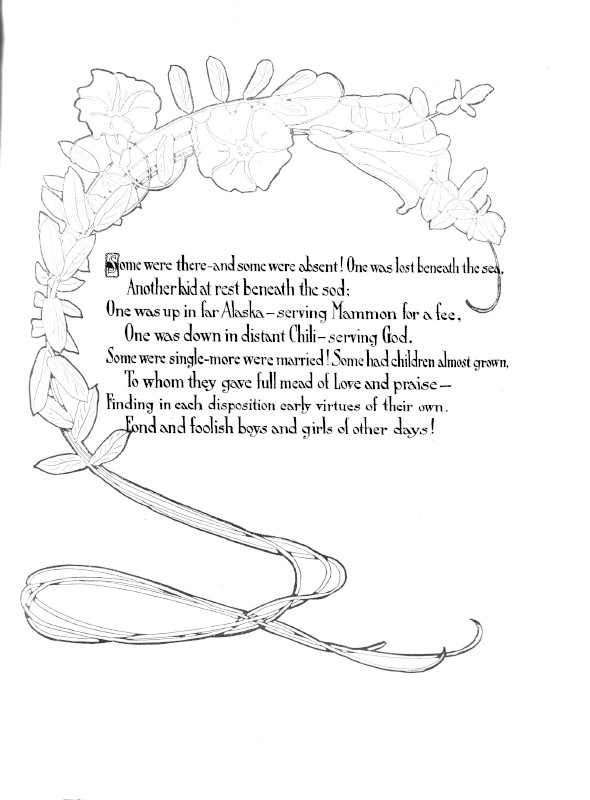 Some were there-and some were absent! One was lost beneath the sea,
Another laid at rest beneath the sod;
One was up in far Alaska-serving Mammon for a fee,
One was down in distant Chili-serving God.
Some were single-more were married! Some had children almost grown,
To whom they gave full mead of Love and praise-
Finding in each disposition early virtues of their own.
Fond and foolish boys and girls of other days!